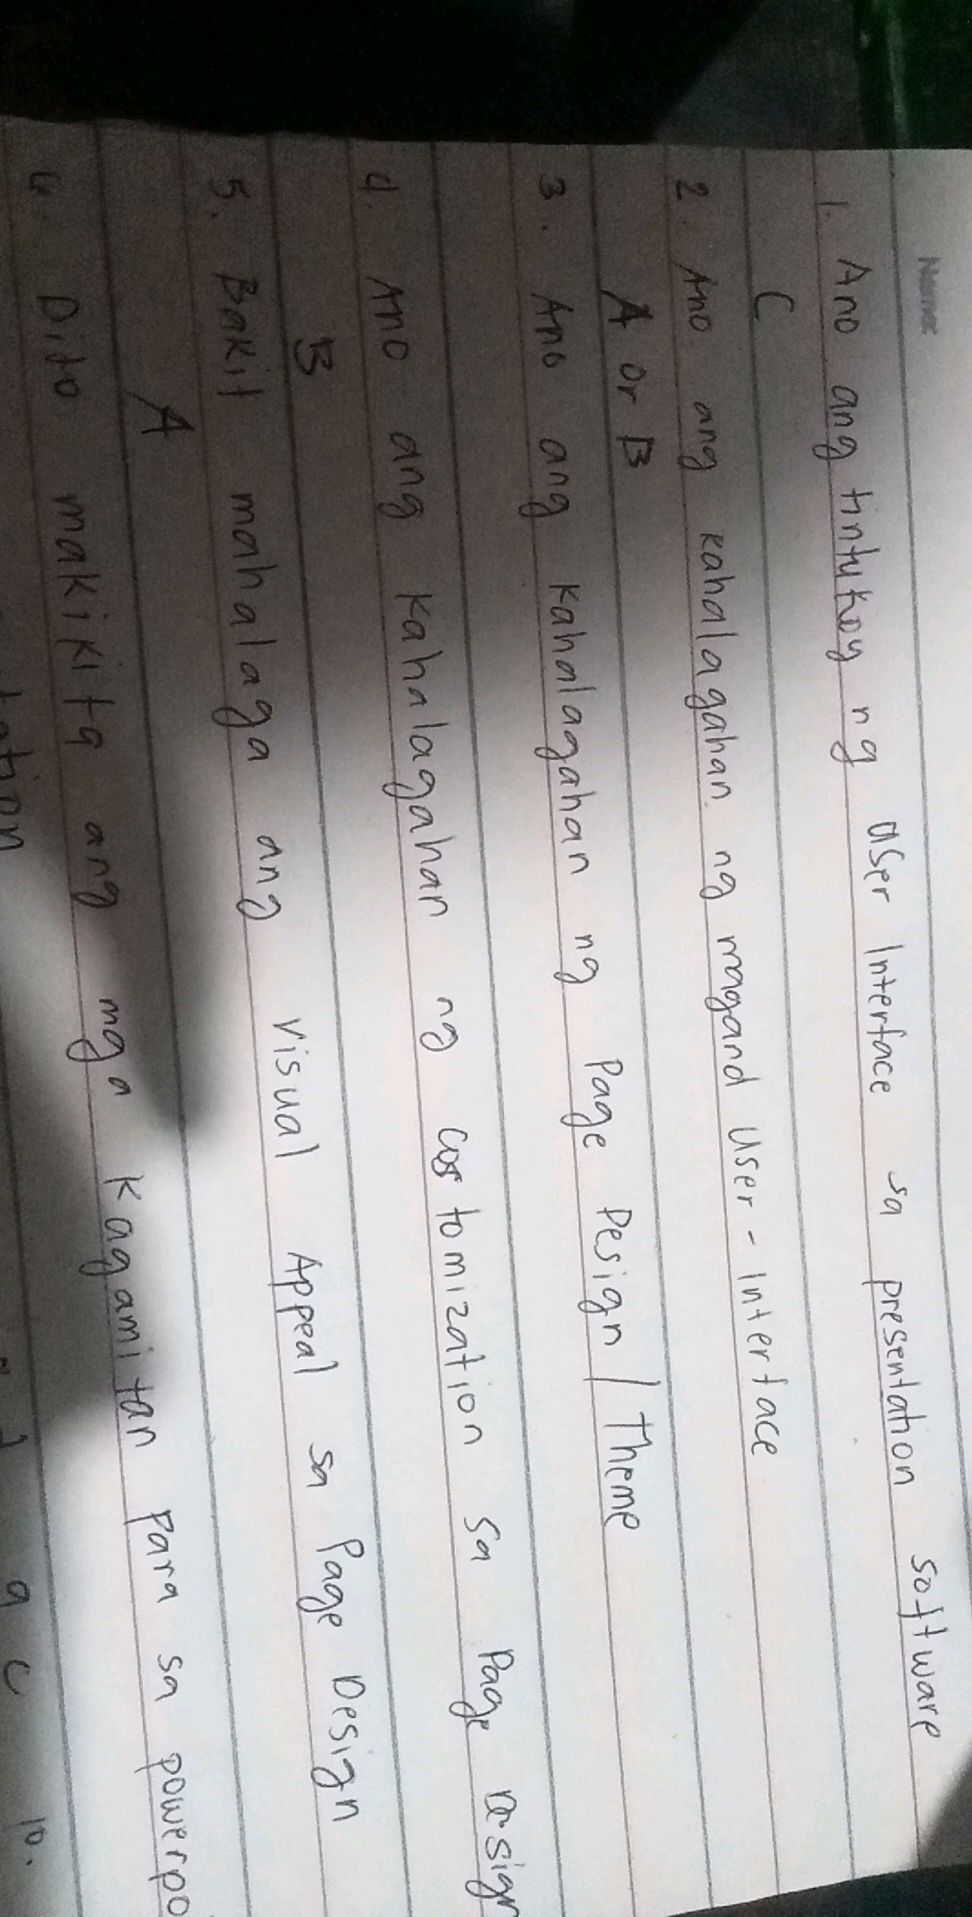 Name
1. Ano ang tintukoy ng user Interface sa presentation software
C
2. Ano ang kahalagahan ng magand User-Interface
A or B
3. Ano ang kahalagahan ng Page Design / Theme
4. Ano ang kahalagahan ng costomization sa Page design
B
5. Bakit mahalaga ang visual Appeal sa Page Design
A
6. Dito makikita ang mga kagamitan para sa powerpo
10.